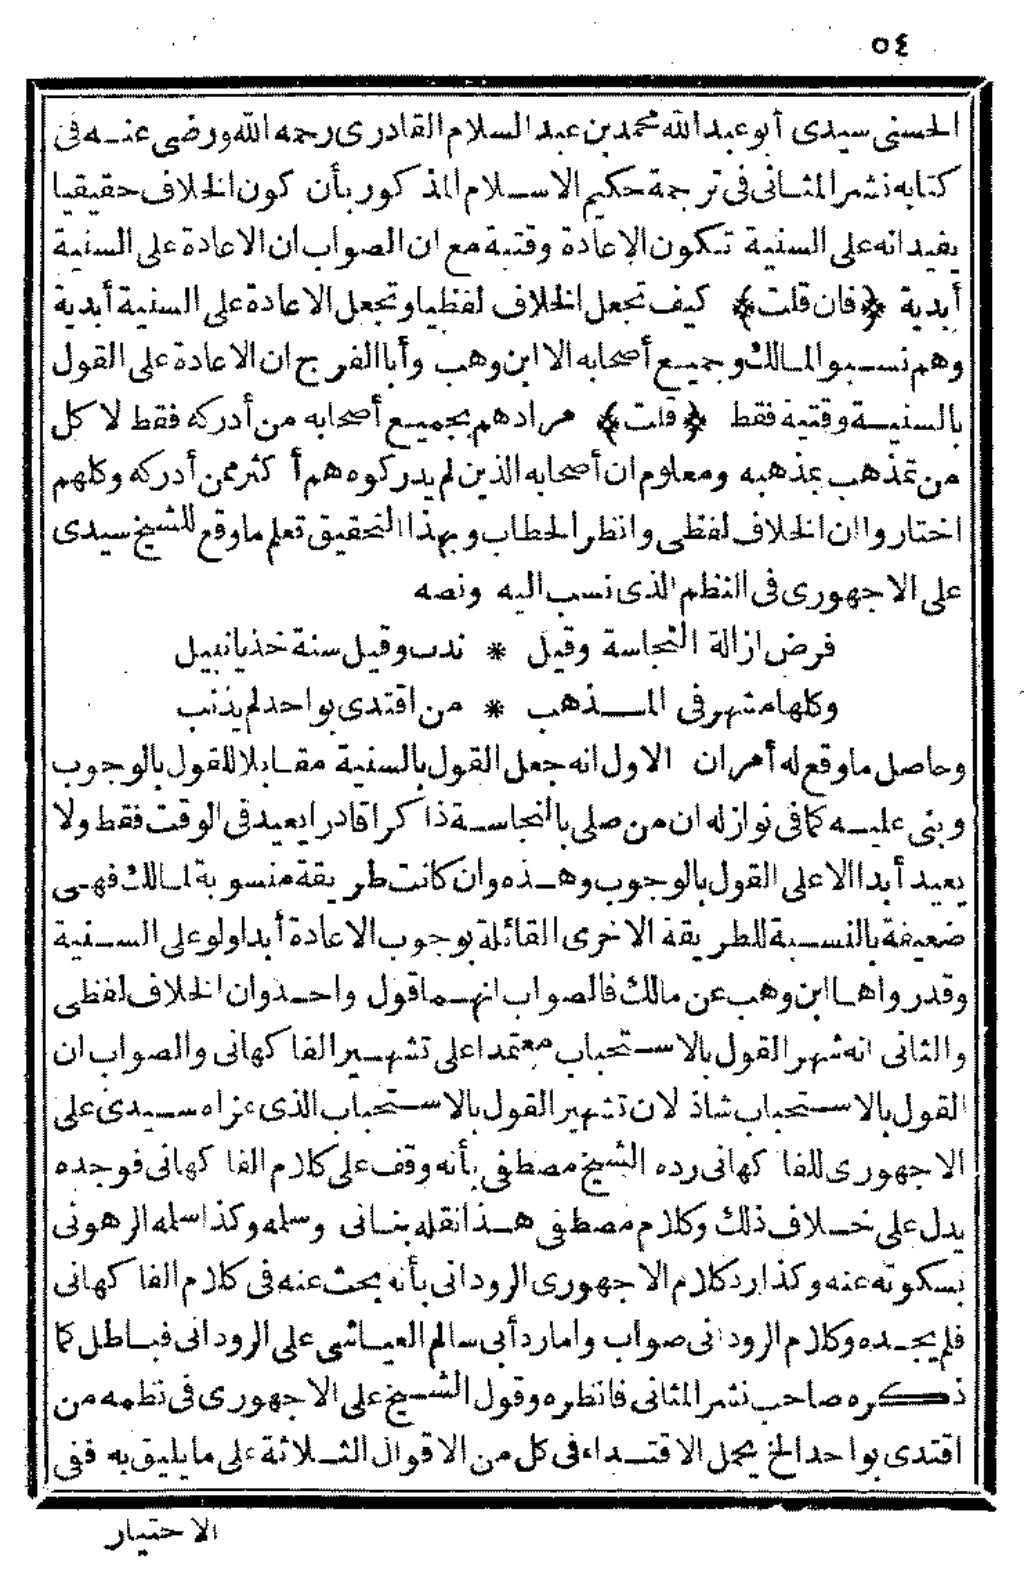 ٥٤
الحسنى سيدى أبو عبد الله محمد بن عبد السلام القادرى رحمه الله ورضى عنه فى
كتابه نشر المثانى فى ترجمة حكيم الاسلام المذكور بأن كون الخلاف حقيقيا
يفيد انه على السنية تكون الاعادة وقتية مع ان الصواب ان الاعادة على السنية
أبدية ﴿فان قلت﴾ كيف تجعل الخلاف لفظيا وتجعل الاعادة على السنية أبدية
وهم نسبوا لمالك وجميع أصحابه الا ابن وهب وأبا الفرج ان الاعادة على القول
بالسنية وقتية فقط ﴿قلت﴾ مرادهم بجميع أصحابه من أدركه فقط لا كل
من تمذهب بمذهبه ومعلوم ان أصحابه الذين لم يدركوه هم أكثر ممن أدركه وكلهم
اختاروا ان الخلاف لفظى وانظر الحطاب وبهذا التحقيق تعلم ما وقع للشيخ سيدى
على الاجهورى فى النظم الذى نسب اليه ونصه
فرض ازالة النجاسة وقيل * ندب وقيل سنة خذ يا نبيل
وكلها مشهر فى المذهب * من اقتدى بواحد لم يذنب
وحاصل ما وقع له أمران الاول انه جعل القول بالسنية مقابلا للقول بالوجوب
وبنى عليه كما فى نوازله ان من صلى بالنجاسة ذاكرا قادرا يعيد فى الوقت فقط ولا
يعيد أبدا الا على القول بالوجوب وهذه وان كانت طريقة منسوبة لمالك فهى
ضعيفة بالنسبة للطريقة الاخرى القائلة بوجوب الاعادة أبدا ولو على السنية
وقد رواها ابن وهب عن مالك فالصواب انهما قول واحد وان الخلاف لفظى
والثانى انه شهر القول بالاستحباب معتمدا على تشهير الفاكهانى والصواب ان
القول بالاستحباب شاذ لان تشهير القول بالاستحباب الذى عزاه سيدى على
الاجهورى للفاكهانى رده الشيخ مصطفى بأنه وقف على كلام الفاكهانى فوجده
يدل على خلاف ذلك وكلام مصطفى هذا نقله بنانى وسلمه وكذا سلمه الرهونى
بسكوته عنه وكذا رد كلام الاجهورى الرودانى بأنه بحث عنه فى كلام الفاكهانى
فلم يجده وكلام الرودانى صواب وأما رد أبى سالم العياشى على الرودانى فباطل كما
ذكره صاحب نشر المثانى فانظره وقول الشيخ على الاجهورى فى نظمه من
اقتدى بواحد الخ يحمل الاقتداء فى كل من الاقوال الثلاثة على ما يليق به ففى
الاختيار